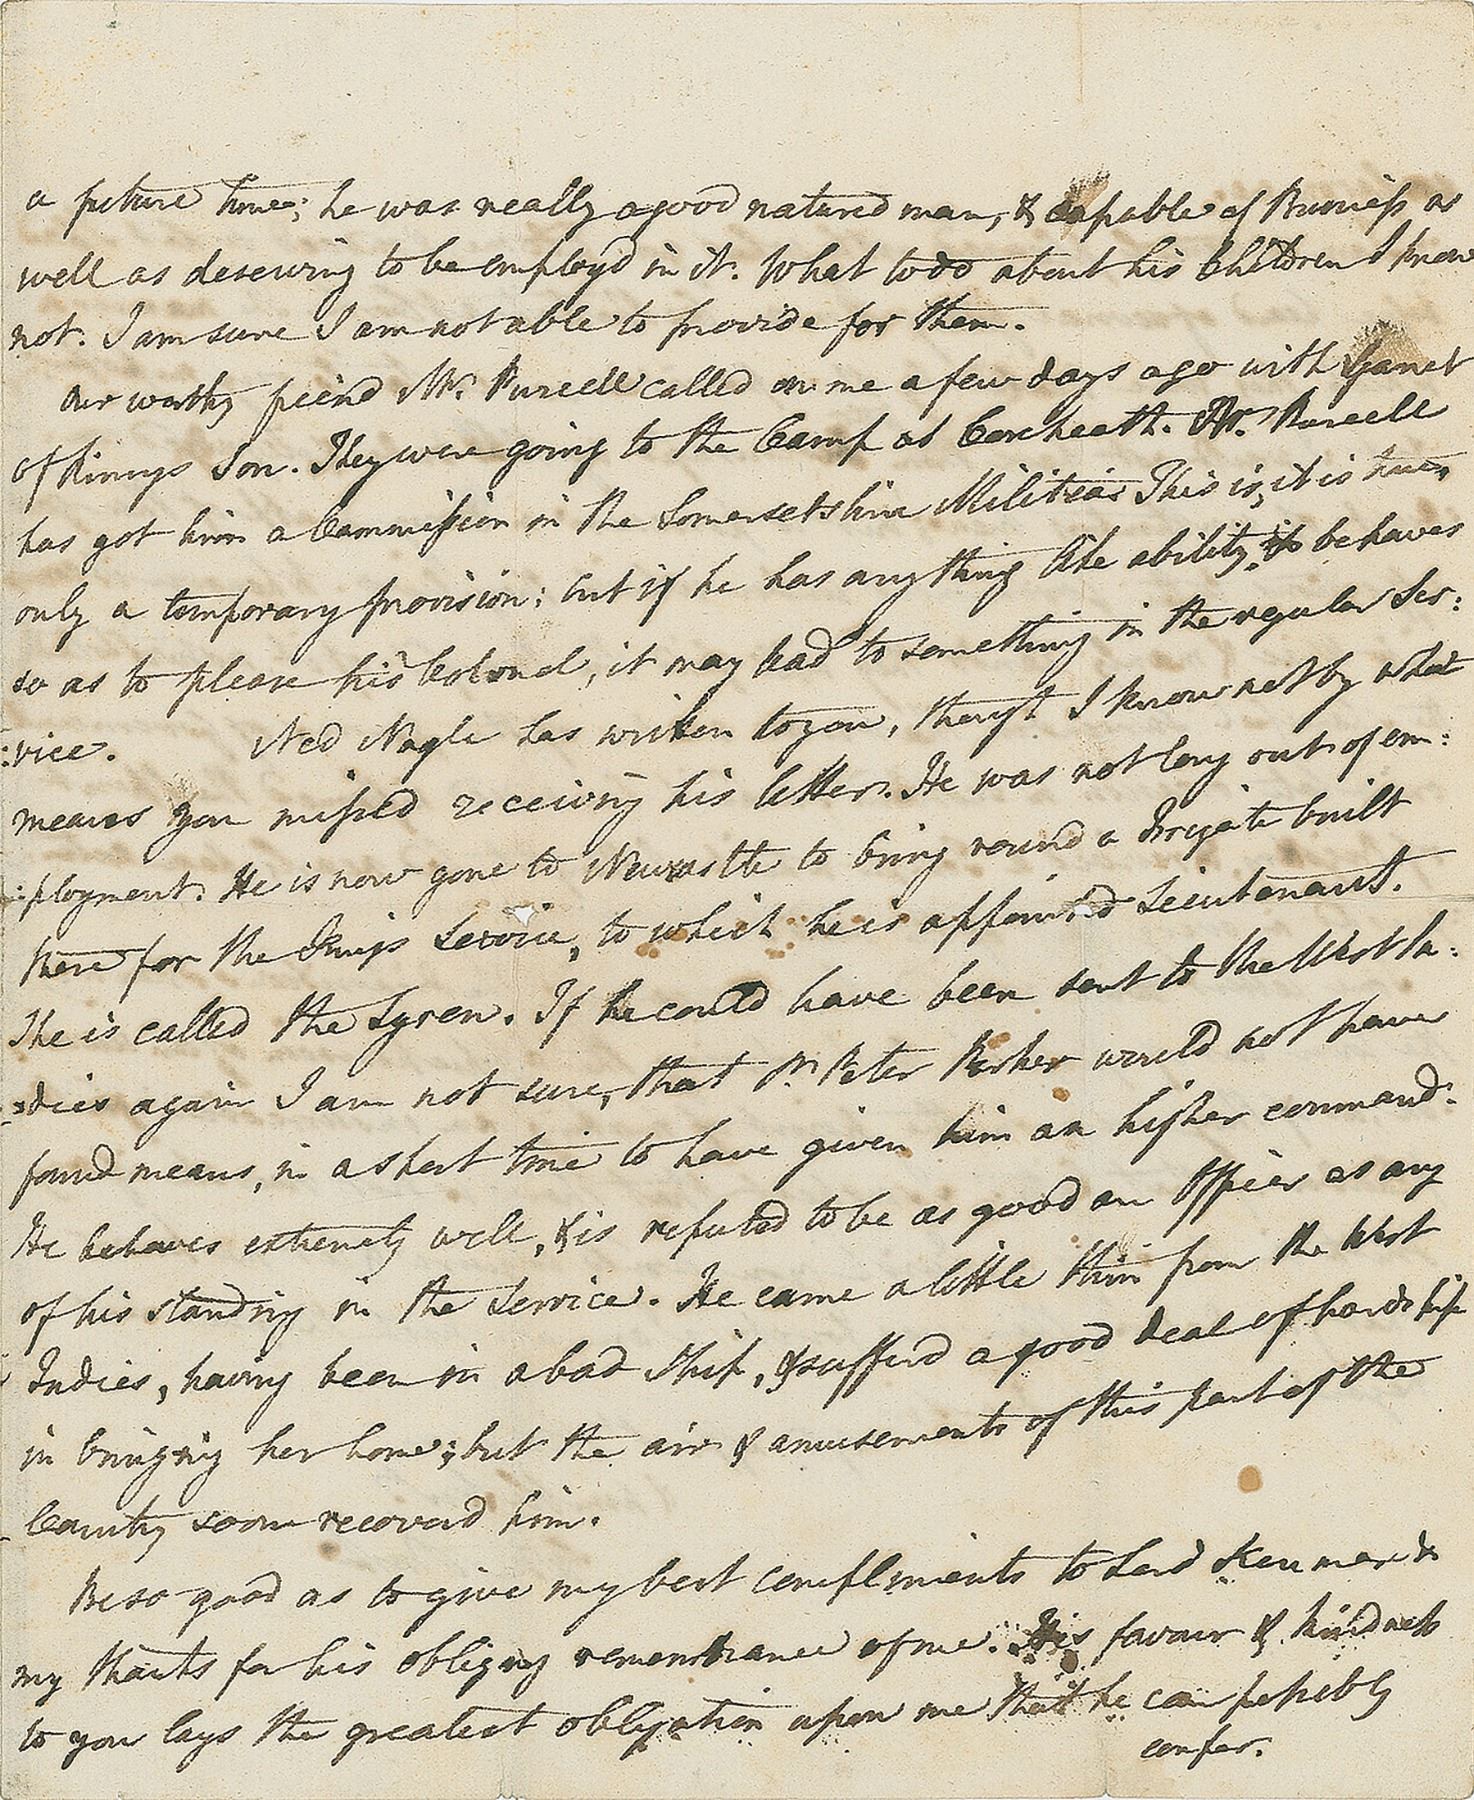 a future time; he was really a good natured man, & capable of Business as
well as deserving to be employd in it. What to do about his Children I know
not. I am sure I am not able to provide for them.
Our worthy friend Mr. Purcell called on me a few days ago with Garret
of Rinnys Son. They were going to the Camp at Coxheath. Mr. Purcell
has got him a Commission in the Somersetshire Militia. This is, it is true,
only a temporary provision: but if he has any thing like ability, & behaves
so as to please his Colonel, it may lead to something in the regular Ser:
:vice. Ned Nagle has written to you, though I know not by what
means you missed receiving his letter. He was not long out of em:
:ployment. He is now gone to Newcastle to bring round a Frigate built
there for the Kings Service, to which he is appointed Lieutenant.
She is called the Syren. If he could have been sent to the West In:
:dies again I am not sure, that Sr. Peter Parker would not have
found means, in a short time to have given him an higher command:
He behaves extremely well, & is reputed to be as good an Officer as any
of his standing in the Service. He came a little thin from the West
Indies, having been in a bad Ship, & sufferd a good deal of hardship
in bringing her home; but the air & amusements of this part of the
Country soon recoverd him.
Be so good as to give my best compliments to Lord Kenmare &
my thanks for his obliging remembrance of me. His favour & kindness
to you lays the greatest obligation upon me that he can possibly
confer.